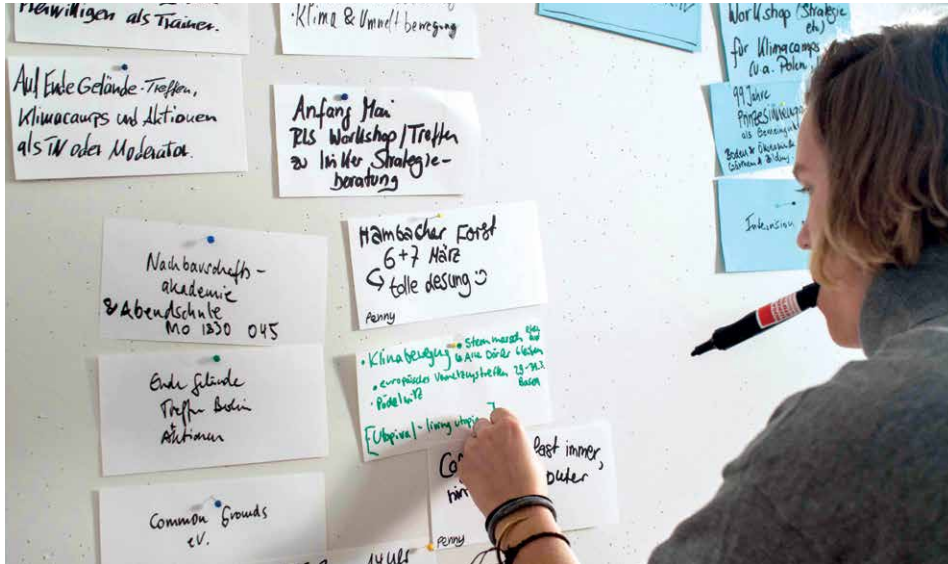 Freiwilligen als Trainer.
Auf Ende Gelände-Treffen,
Klimacamps und Aktionen
als TN oder Moderator.
Nachbarschafts-
akademie
& Abendschule
Mo 1830 045
Ende Gelände
Treffen Berlin
Aktionen
Common Grounds
eV.
· Klima & Umweltbewegung
Anfang Mai
RLS Workshop/Treffen
zu linker Strategie-
beratung
Hambacher Forst
6+7 März
tolle Lesung
Penny
· Klimabewegung Sternmarsch
Alle Dörfer bleiben
· europäisches Vernetzungstreffen 29-31.3.
Basel
· Pödelwitz
[Utopival - living utopia]
fast immer,
Penny
14 Uhr
Workshop (Strategie
etc)
für Klimacamps
(u.a. Polen
99 Jahre
Prinzessinnengarten
als Gemeingut
Boden &
Bildung.